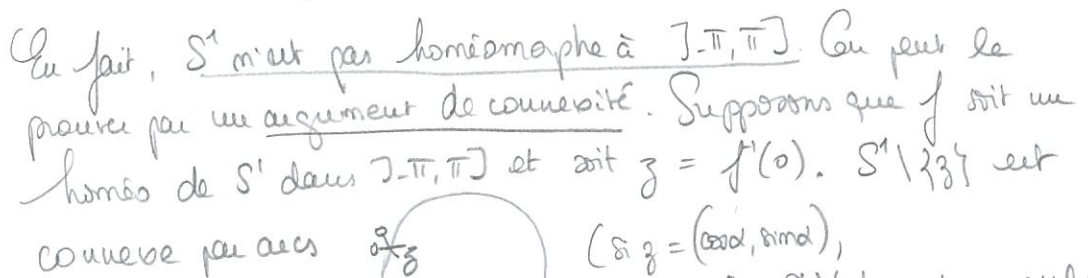 En fait, S¹ n'est pas homéomorphe à ]-π, π]. On peut le
prouver par un argument de connexité. Supposons que f soit un
homéo de S¹ dans ]-π, π] et soit z = f⁻¹(0). S¹\{z} est
connexe par arcs z (si z = (cosα, sinα),